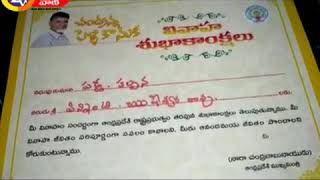 వాణి
చంద్రన్న
పెళ్లి కానుక
వివాహ
శుభాకాంక్షలు
మీ వివాహం సందర్భంగా ఆంధ్రప్రదేశ్ రాష్ట్రప్రభుత్వం తరపున శుభాకాంక్షలు తెలుపుతున్నాము. మీ
వివాహ జీవితం పరిపూర్ణంగా సఫలం కావాలని, మీరు ఆనందమయ జీవితం పొందాలని
కోరుకుంటున్నాము.
(నారా చంద్రబాబునాయుడు)
ఆంధ్రప్రదేశ్ ముఖ్యమంత్రి